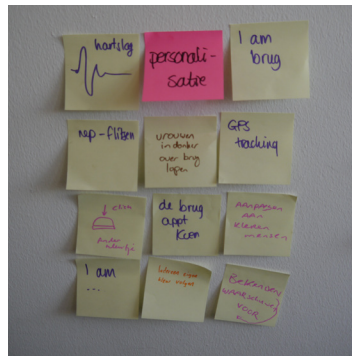 hartslag
personali-
satie
I am
brug
nep-flitsen
vrouwen
in donker
over brug
lopen
GPS
tracking
de brug
appt
Koen
aanpassen
aan
kleuren
mensen
I am
...
voor